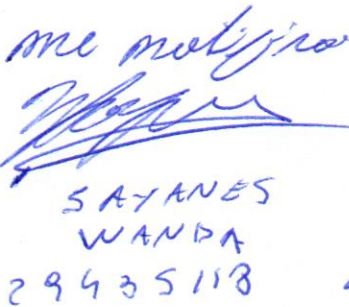 me notifico
SAYANES
WANDA
29435118